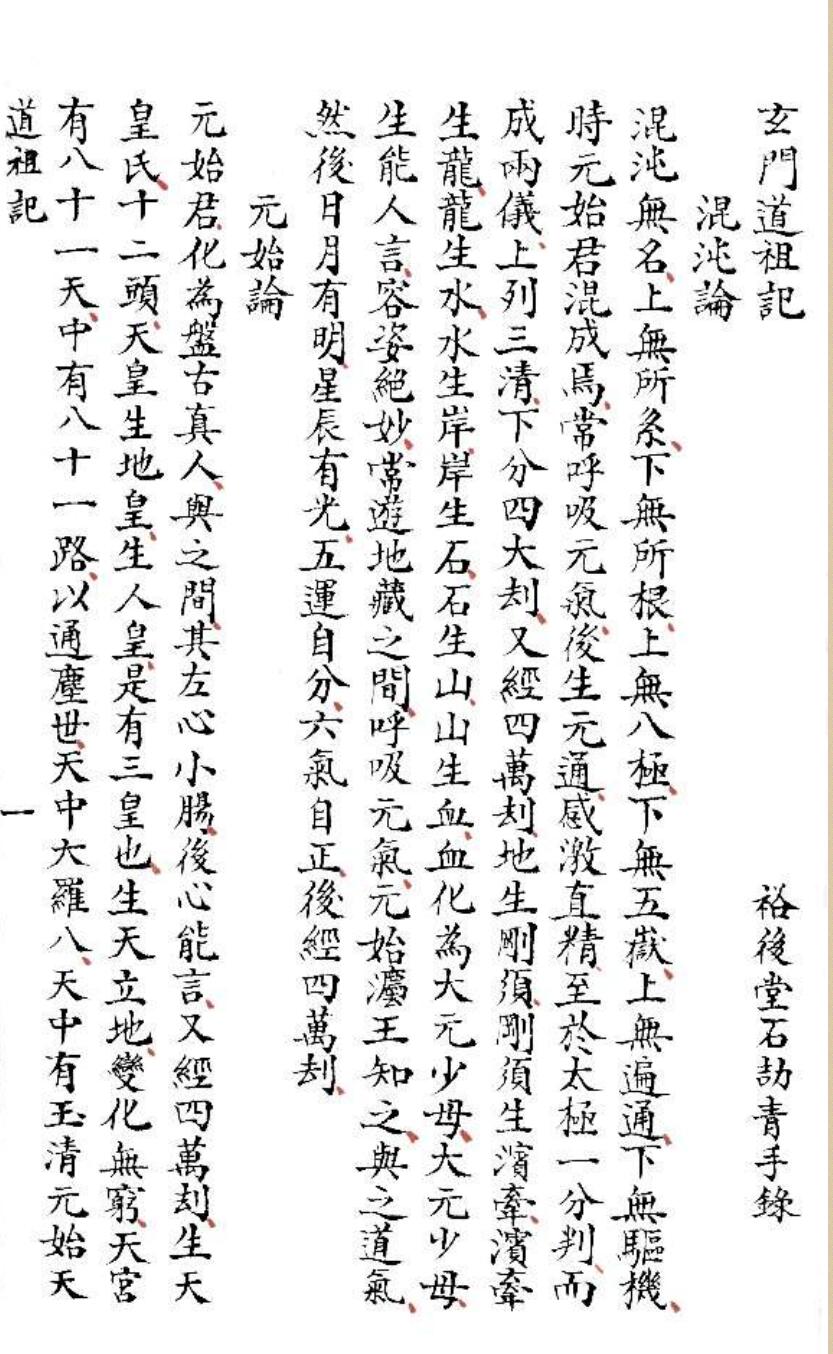 玄門道祖記　裕後堂石劼青手錄
混沌論
混沌無名、上無所系、下無所根、上無八極、下無五嶽、上無遍通、下無驅機、
時元始君混成焉、常呼吸元氣、後生元通、感激直精至於太極一分判、而
成兩儀、上列三清、下分四大刦、又經四萬刦、地生剛須、剛須生濱牽、濱牽
生龍、龍生水、水生岸、岸生石、石生山、山生血、血化為大元少母、大元少母
生能人言、容姿絕妙、常遊地藏之間、呼吸元氣、元始王知之、與之道氣、
然後日月有明、星辰有光、五運自分、六氣自正、後經四萬刦、
元始論
元始君、化為盤古真人、與之間、其左心小腸、後心能言、又經四萬刦、生天
皇氏、十二頭、天皇生地皇、生人皇、是有三皇也、生天立地、變化無窮、天宮
有八十一天、中有八十一路、以通塵世、天中大羅八、天中有玉清元始天
道祖記
一